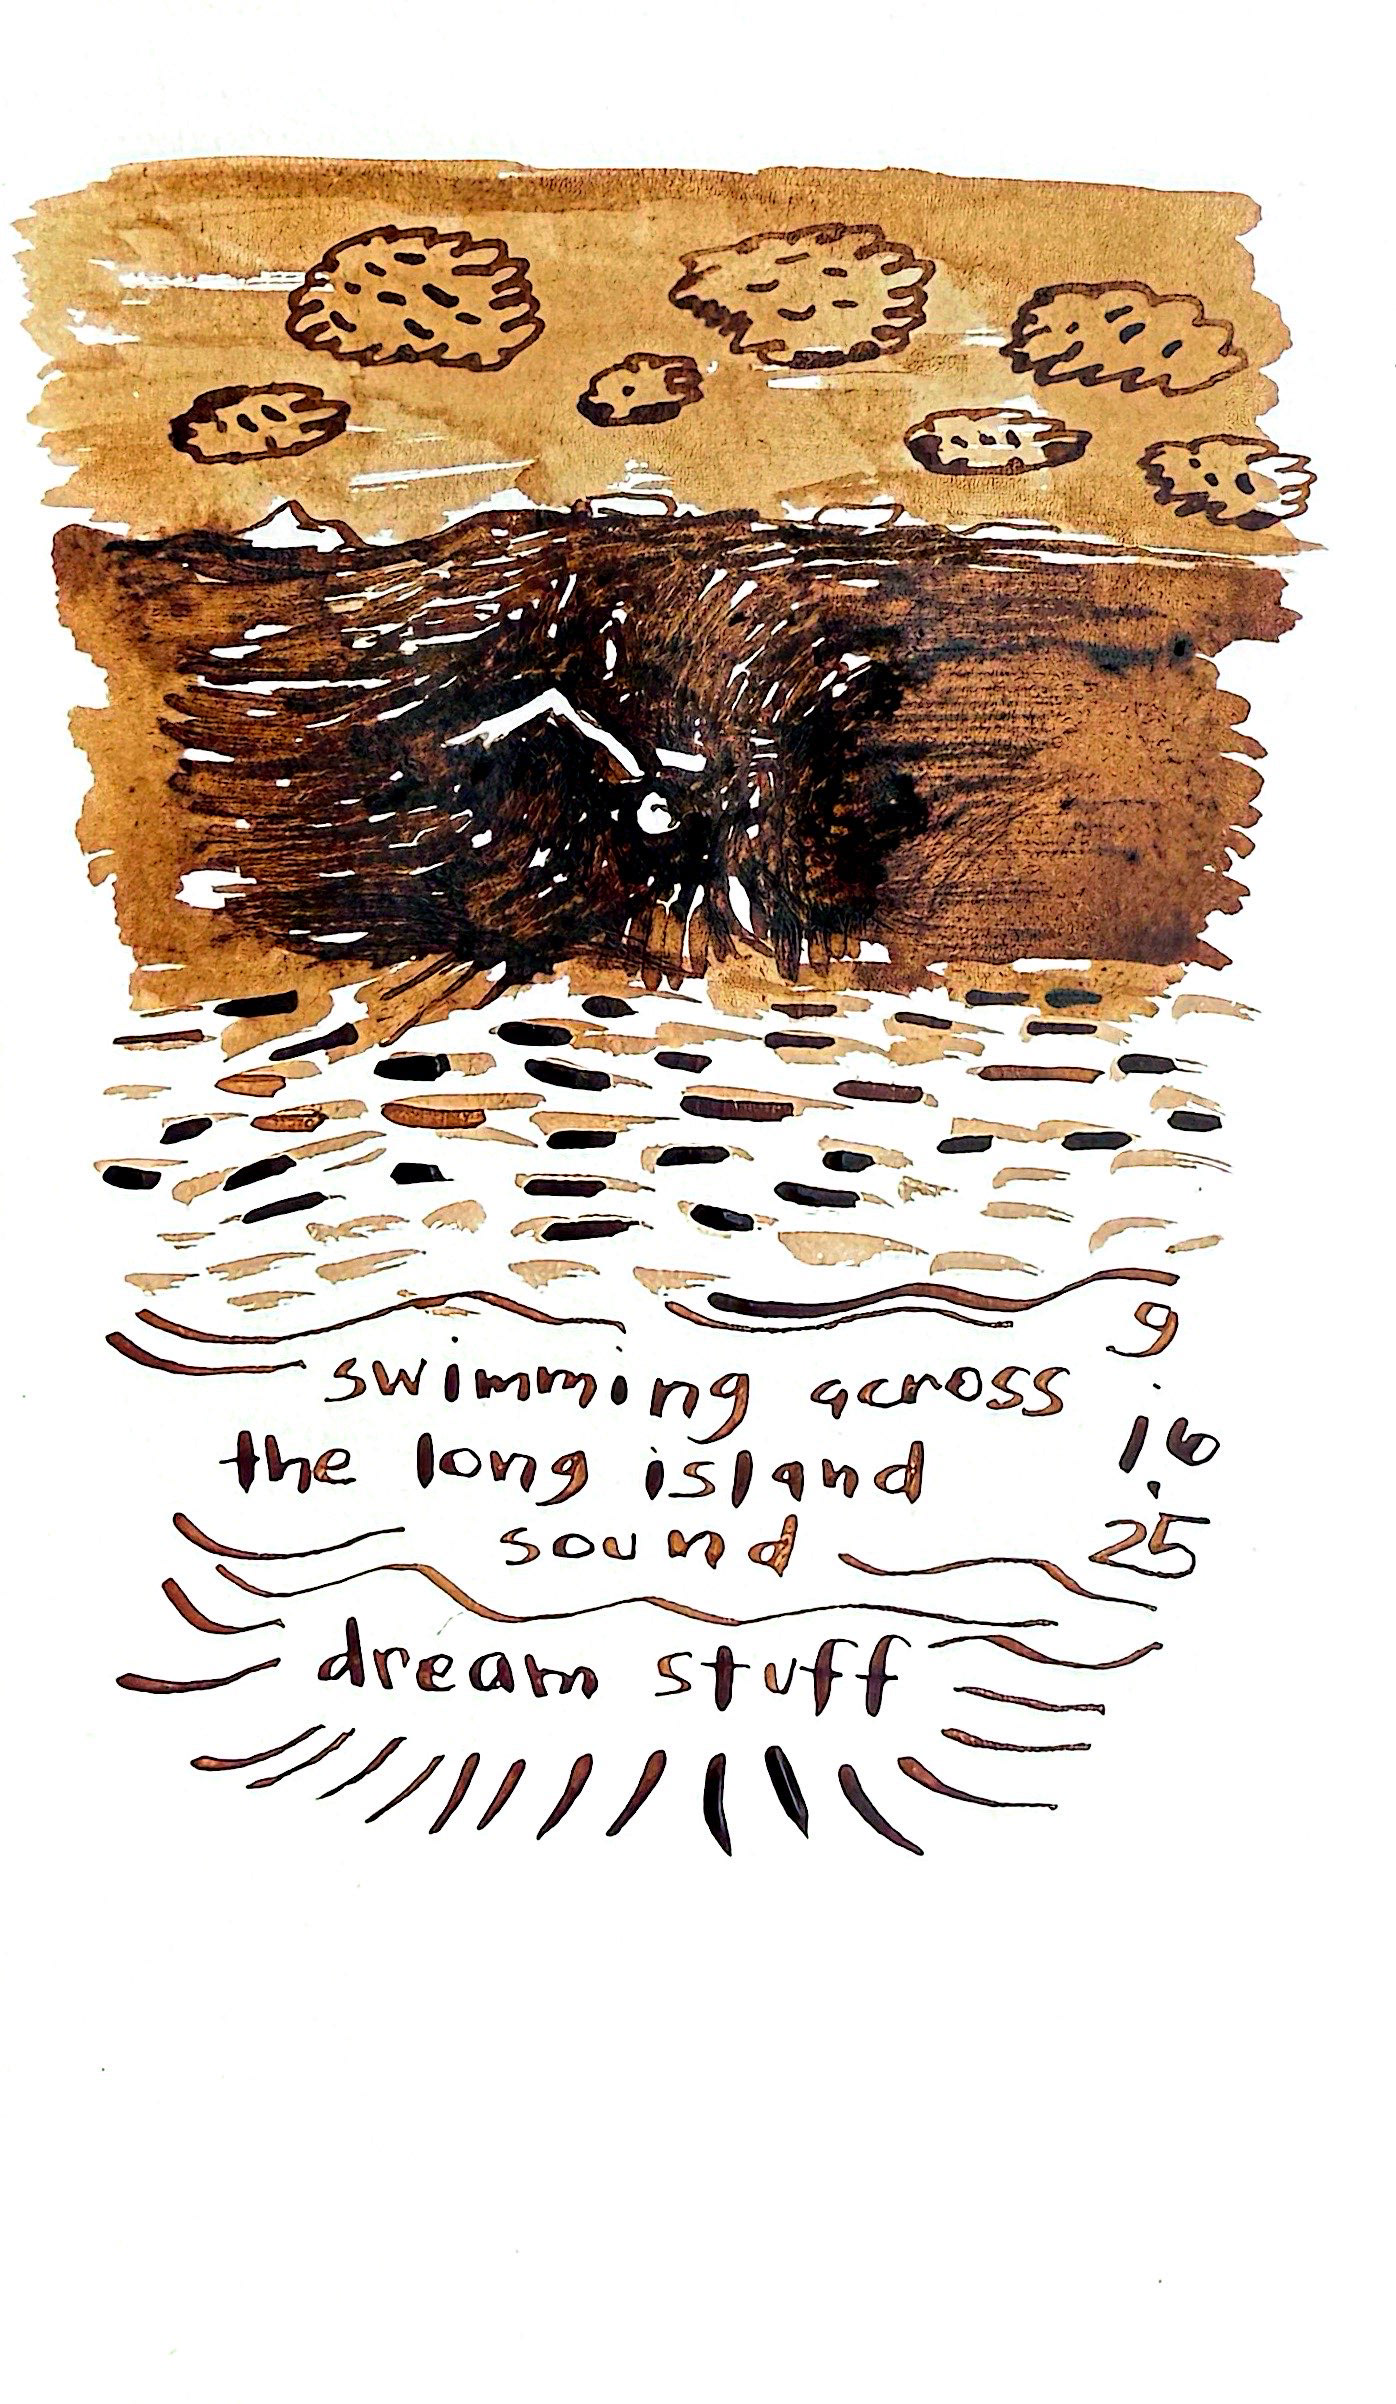 swimming across
the long island
sound
dream stuff
9
.
16
.
25